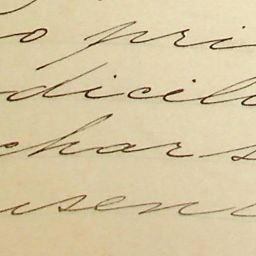 o pri
dicil
char s
usen